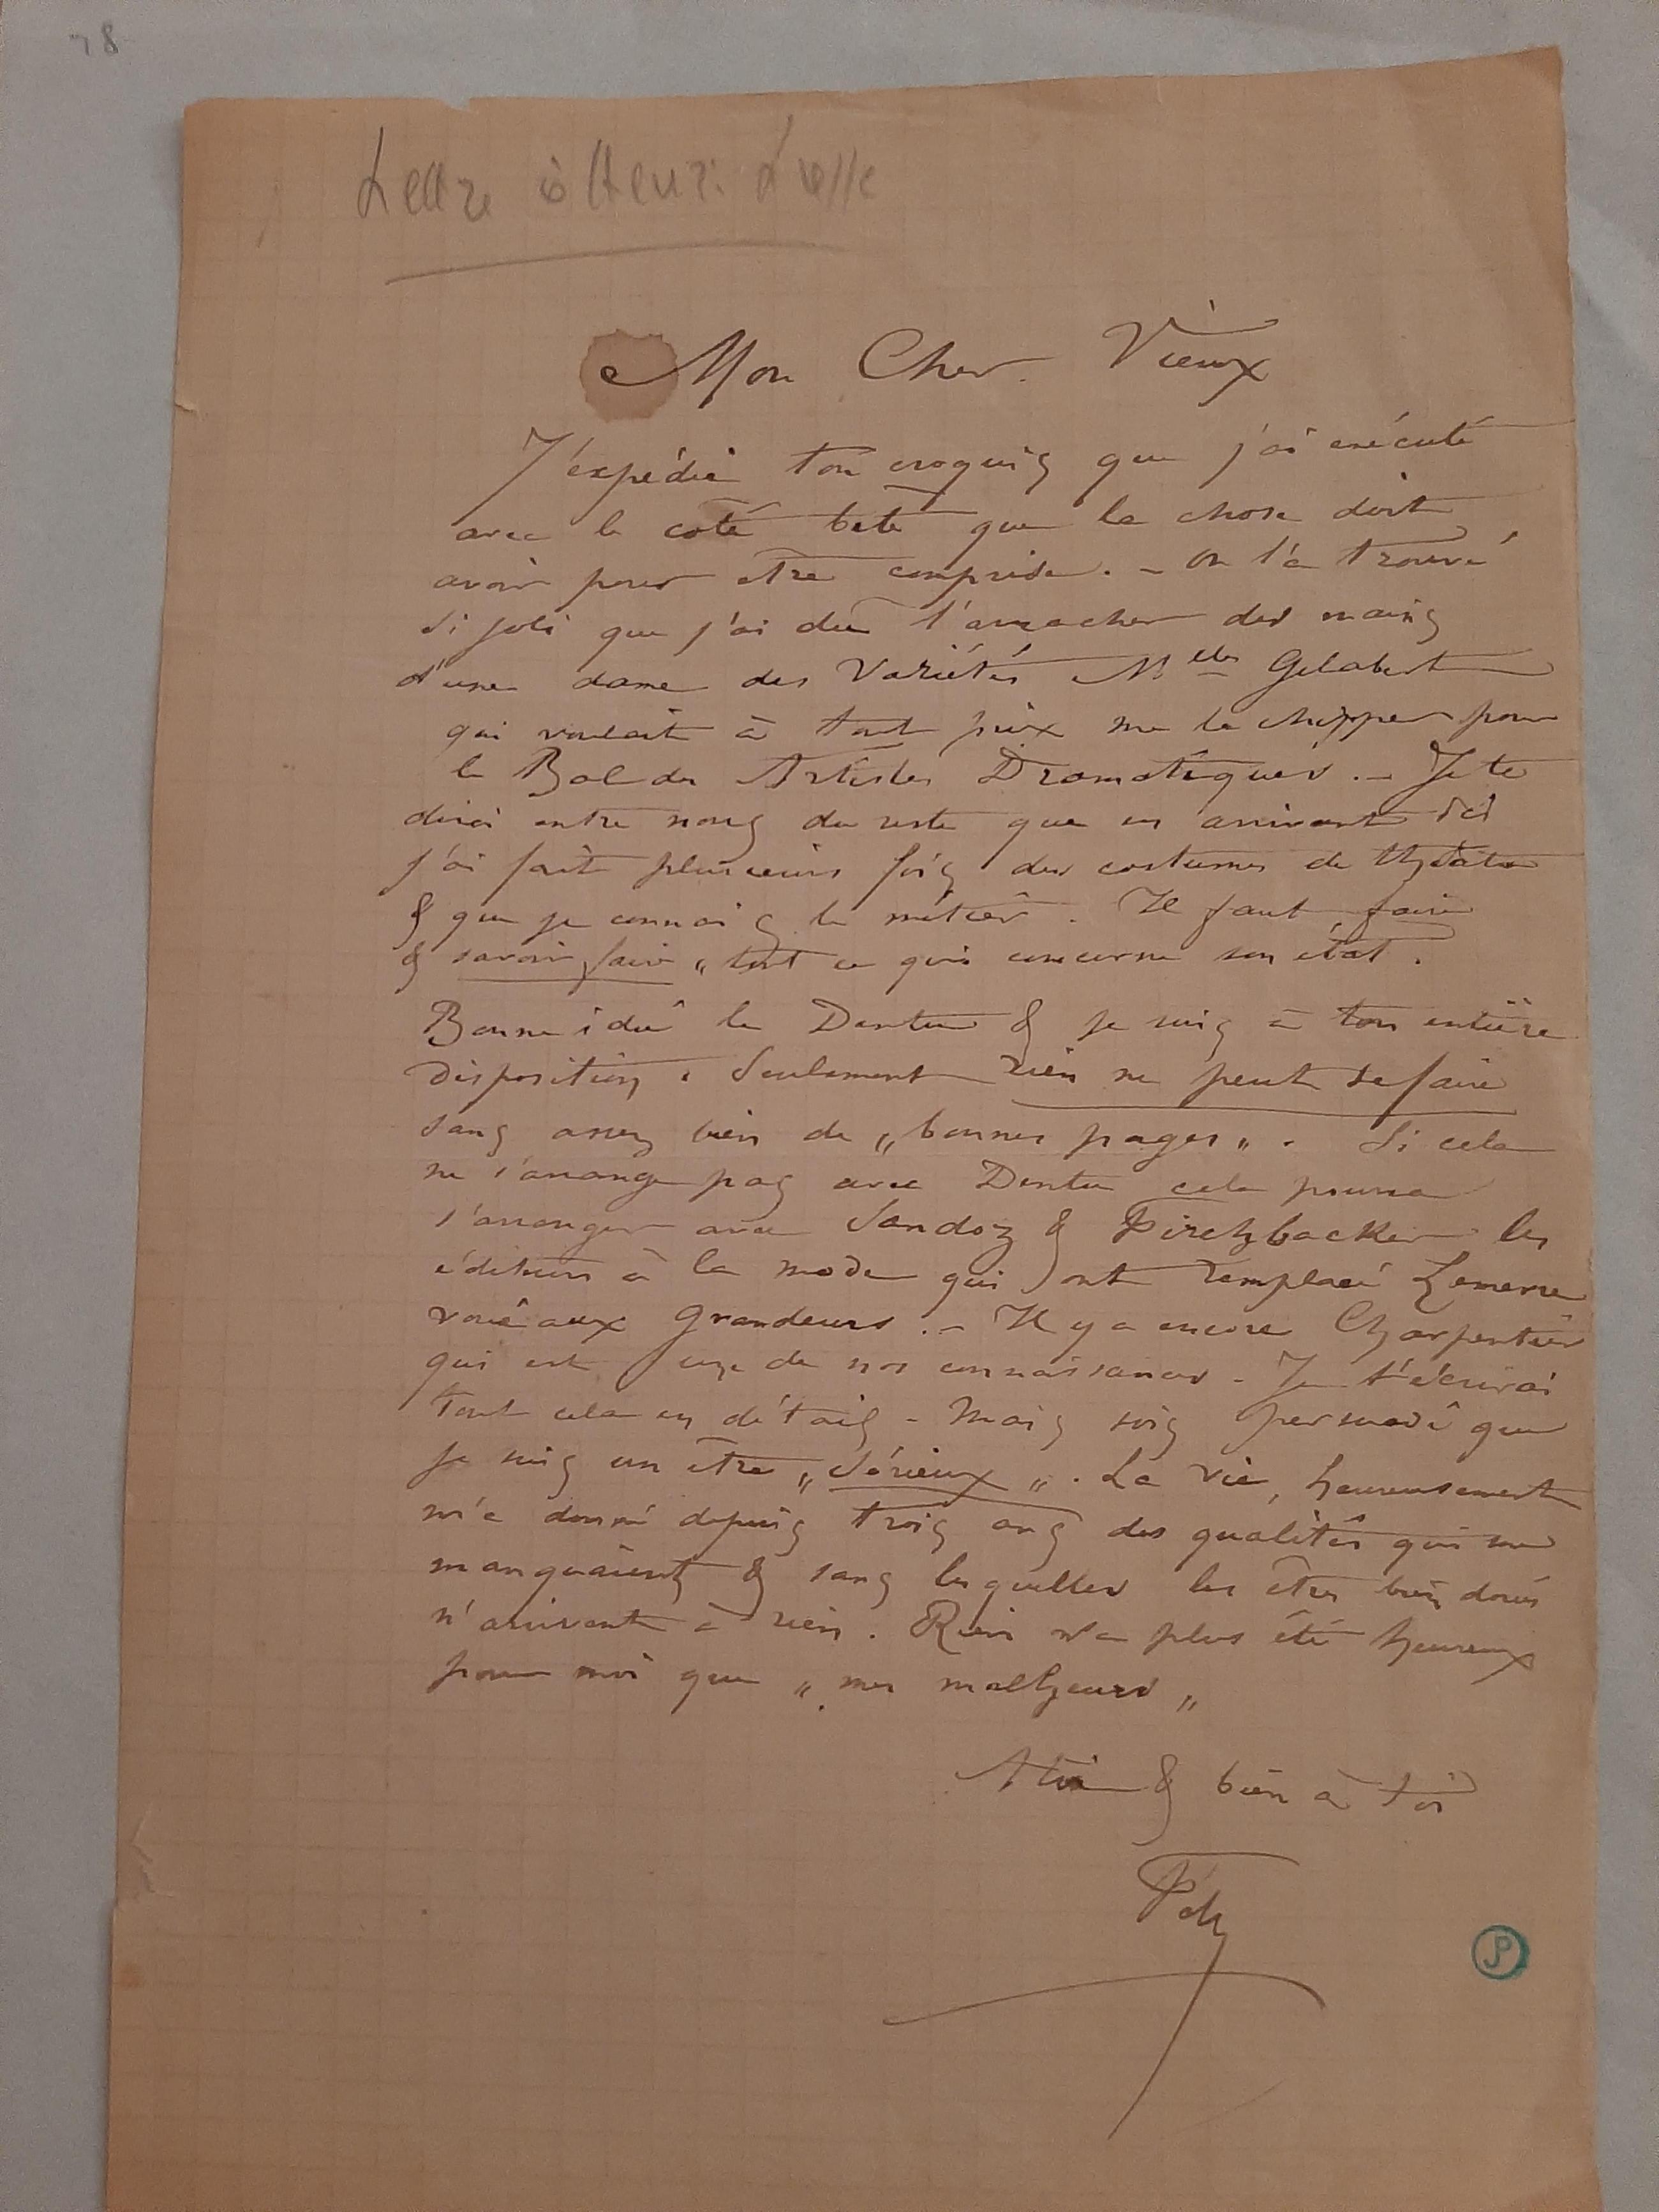 78
Lettre à Henri Liesse
Mon Cher Vieux
J'expédie ton croquis que j'ai exécuté
avec le coté bete que la chose doit
avoir pour être comprise. – On l'a trouvé
si joli que j'ai du l'arracher des mains
d'une dame des Variétés Mlle Gelabert
qui voulait à tout prix me le chipper pour
le Bal des Artistes Dramatiques. – Je te
dirai entre nous du reste que en arrivant ici
j'ai fait plusieurs fois des costumes de théatre
& que je connais le métier. Il faut faire
& savoir faire „ tout ce qui concerne son état.
Bonne idée le Dentu & je suis à ton entière
disposition. Seulement rien ne peut se faire
sans assez bien de „ bonnes pages „. Si cela
ne s'arrange pas avec Dentu cela pourra
s'arranger avec Sandoz & Fischbacker les
éditeurs à la mode qui ont remplacé Lemerre
voué aux grandeurs. – Il y a encore Charpentier
qui est une de nos connaissances – Je t'écrirai
tout cela en détail – Mais sois persuadé que
je suis un être „ Sérieux „. La vie, heureusement
m'a donné depuis trois ans des qualités qui me
manquaient & sans lesquelles les êtres bien doués
n'arrivent à rien. Rien n'a plus été heureux
pour moi que „ mes malheurs „
A toi & bien à toi
Fély
JP